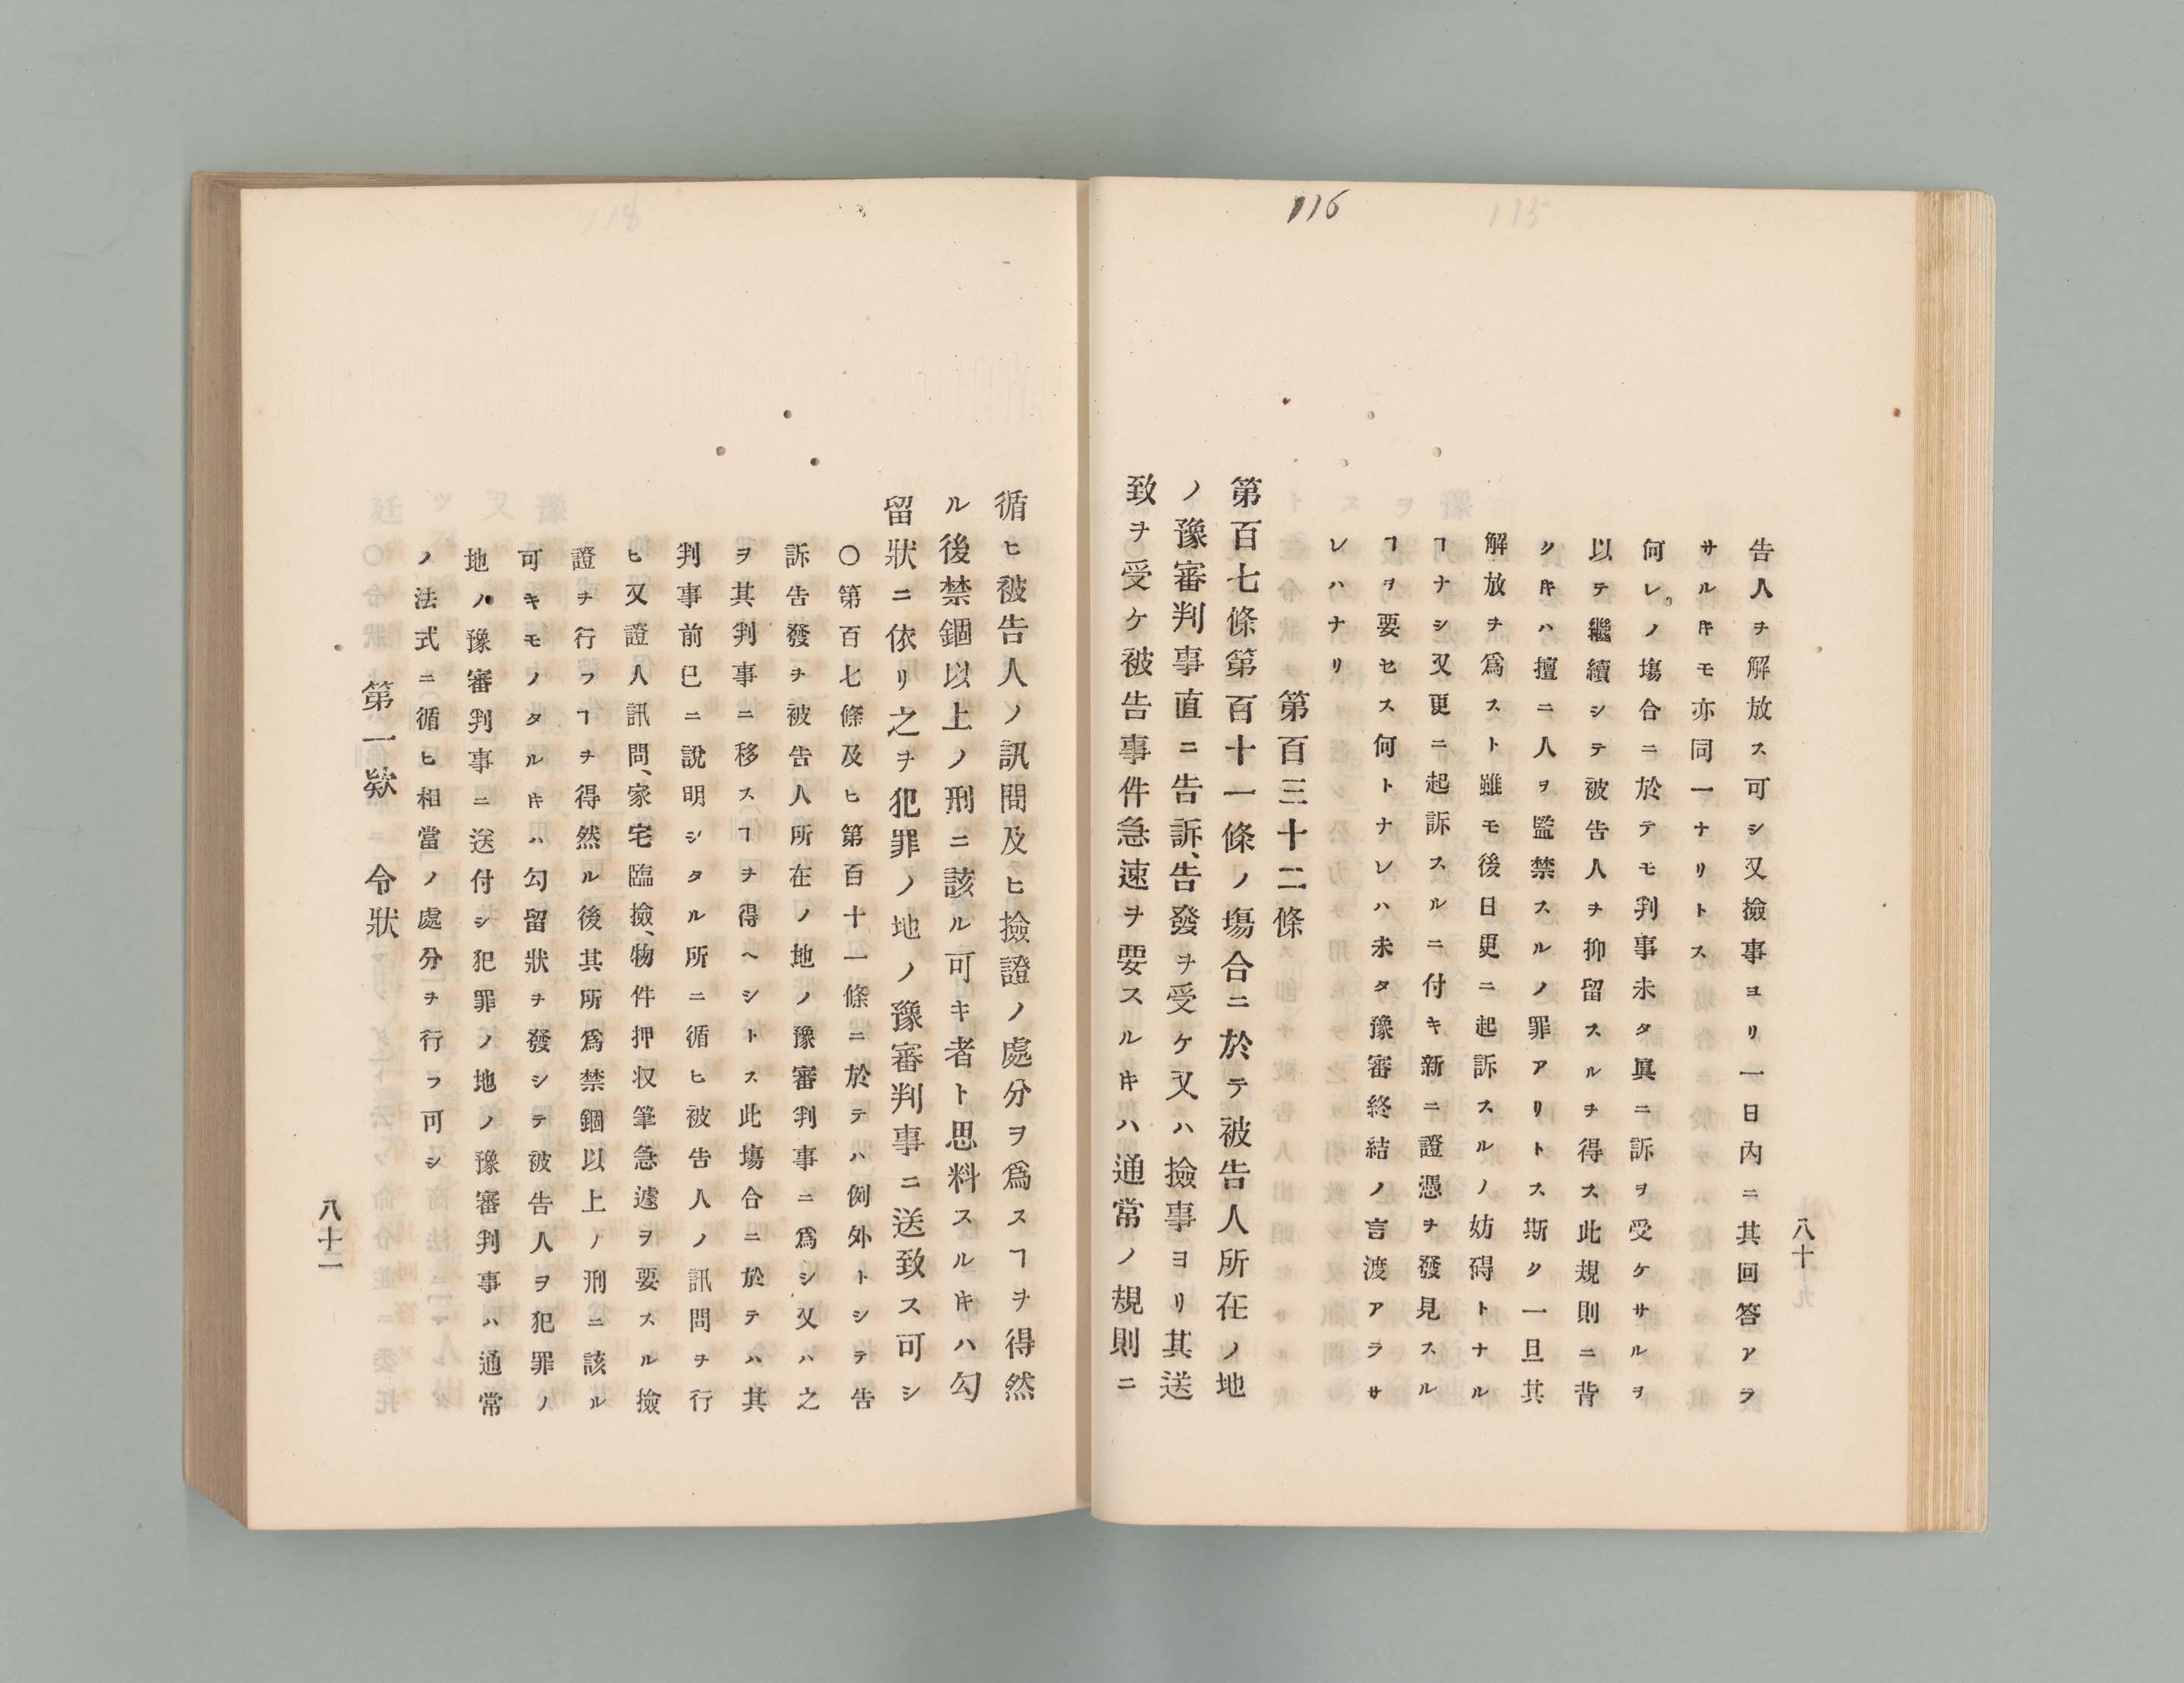 116
八十
告人ヲ解放ス可シ又撿事ヨリ一日內ニ其回答アラ
サルキモ亦同一ナリトス
何レノ塲合ニ於テモ判事未タ眞ニ訴ヲ受ケサルヲ
以テ繼續シテ被告人ヲ抑留スルヲ得ス此規則ニ背
クキハ擅ニ人ヲ監禁スルノ罪アリトス斯ク一旦其
解放ヲ爲スト雖モ後日更ニ起訴スルノ妨碍トナル
ヿナシ又更ニ起訴スルニ付キ新ニ證憑ヲ發見スル
ヿヲ要セス何トナレハ未タ豫審終結ノ言渡アラサ
レハナリ
第百三十二條
第百七條第百十一條ノ塲合ニ於テ被告人所在ノ地
ノ豫審判事直ニ告訴、告發ヲ受ケ又ハ撿事ヨリ其送
致ヲ受ケ被告事件急速ヲ要スルキハ通常ノ規則ニ
循ヒ被告人ノ訊問及ヒ撿證ノ處分ヲ爲スヿヲ得然
ル後禁錮以上ノ刑ニ該ル可キ者ト思料スルキハ勾
留狀ニ依リ之ヲ犯罪ノ地ノ豫審判事ニ送致ス可シ
〇第百七條及ヒ第百十一條ニ於テハ例外トシテ告
訴告發ヲ被告人所在ノ地ノ豫審判事ニ爲シ又ハ之
ヲ其判事ニ移スヿヲ得ヘシトス此塲合ニ於テハ其
判事前已ニ說明シタル所ニ循ヒ被告人ノ訊問ヲ行
ヒ又證人訊問、家宅臨撿、物件押収筆急遽ヲ要スル撿
證ヲ行フヿヲ得然ル後其所爲禁錮以上ノ刑ニ該ル
可キモノタルキハ勾留狀ヲ發シテ被告人ヲ犯罪ノ
地ノ豫審判事ニ送付シ犯罪ノ地ノ豫審判事ハ通常
ノ法式ニ循ヒ相當ノ處分ヲ行フ可シ
第一欵 令狀
八十一